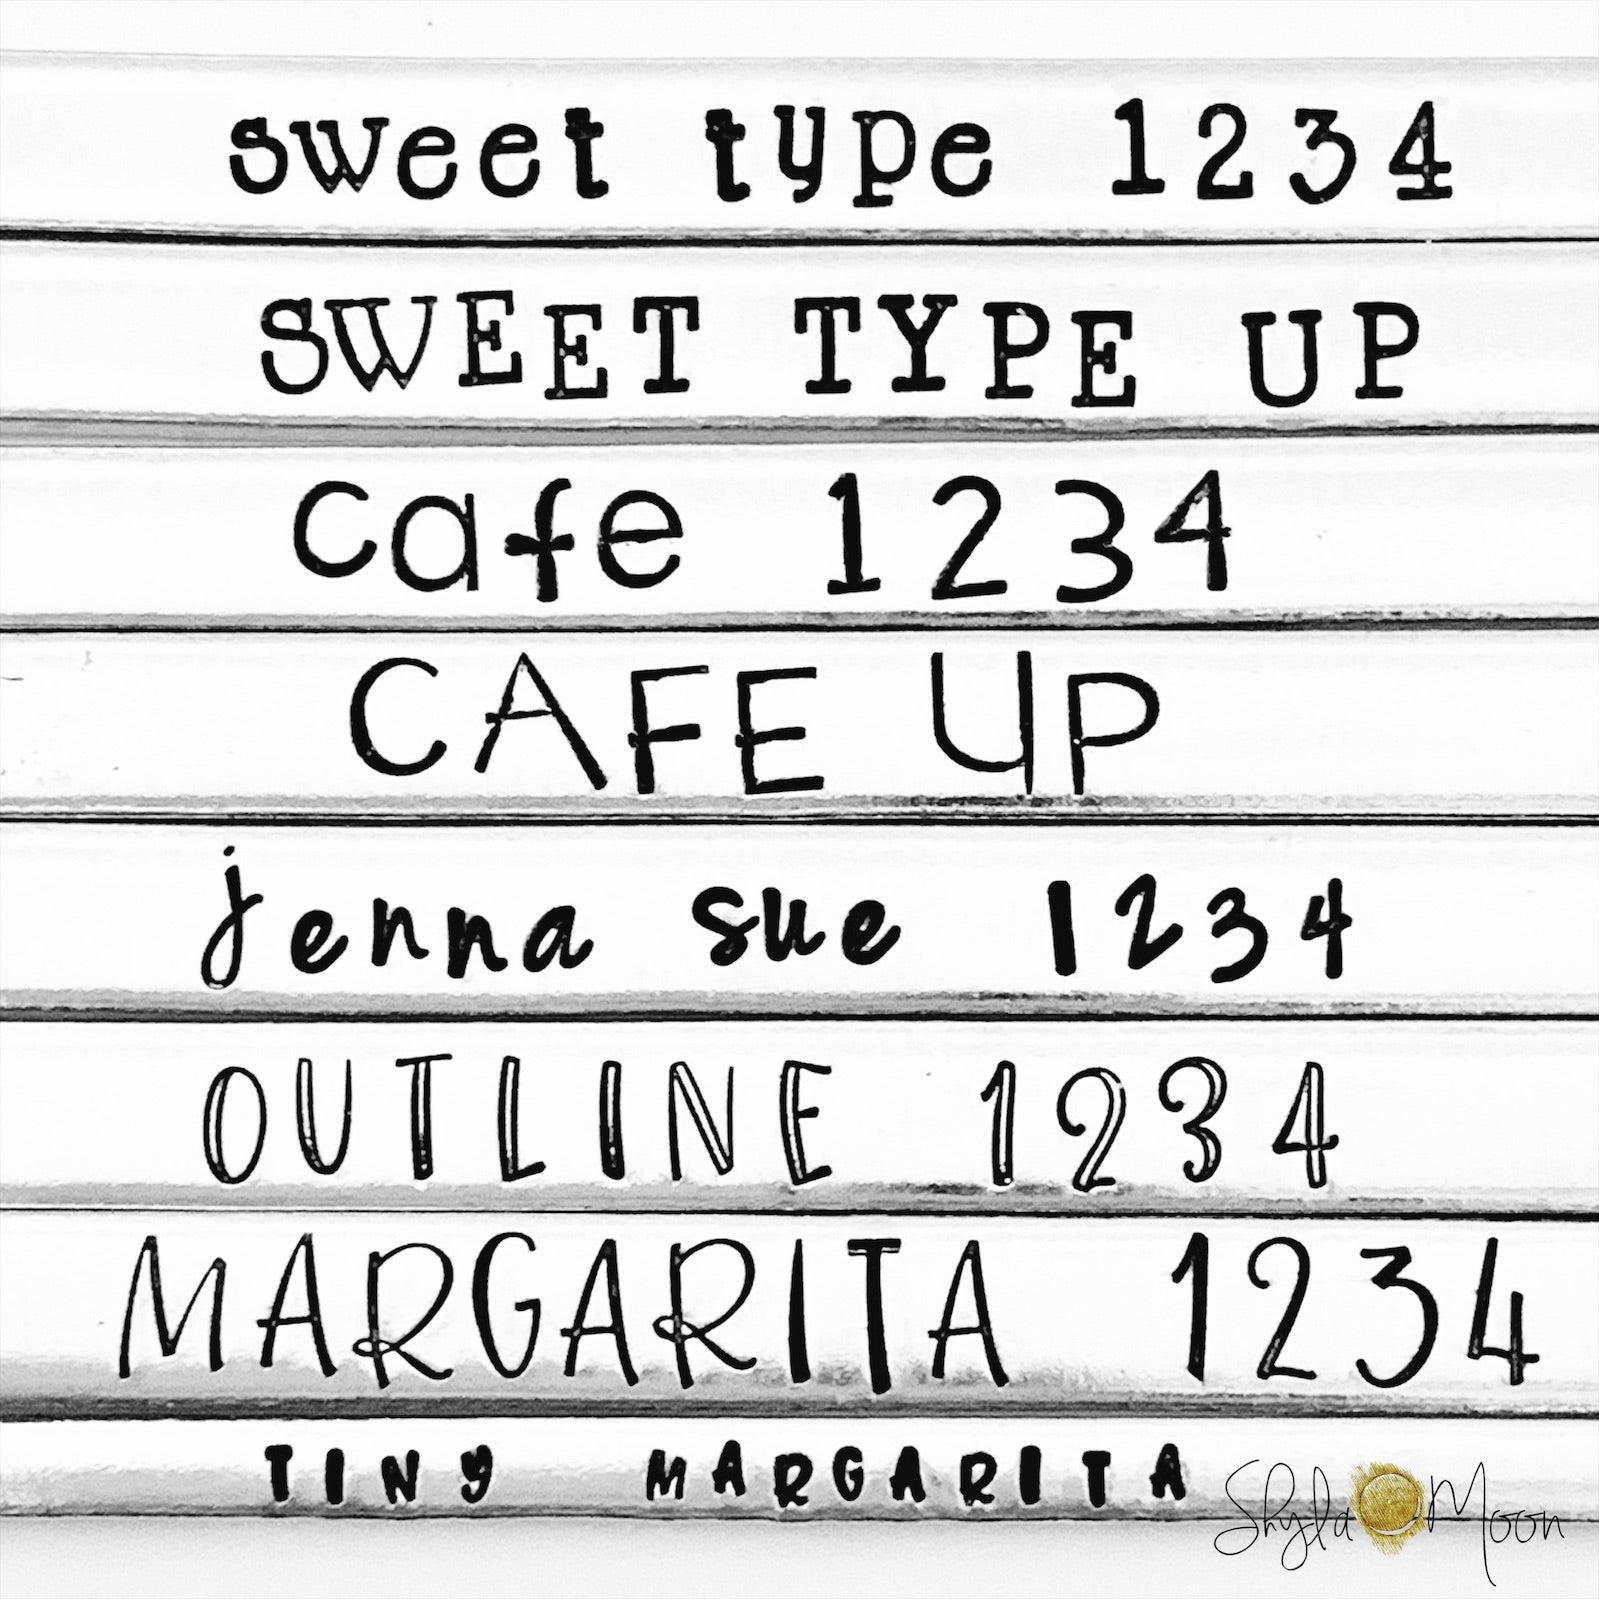 sweet type 1234
SWEET TYPE UP
cafe 1234
CAFE UP
jenna sue 1234
OUTLINE 1234
MARGARITA 1234
TINY MARGARITA
Shyla Moon